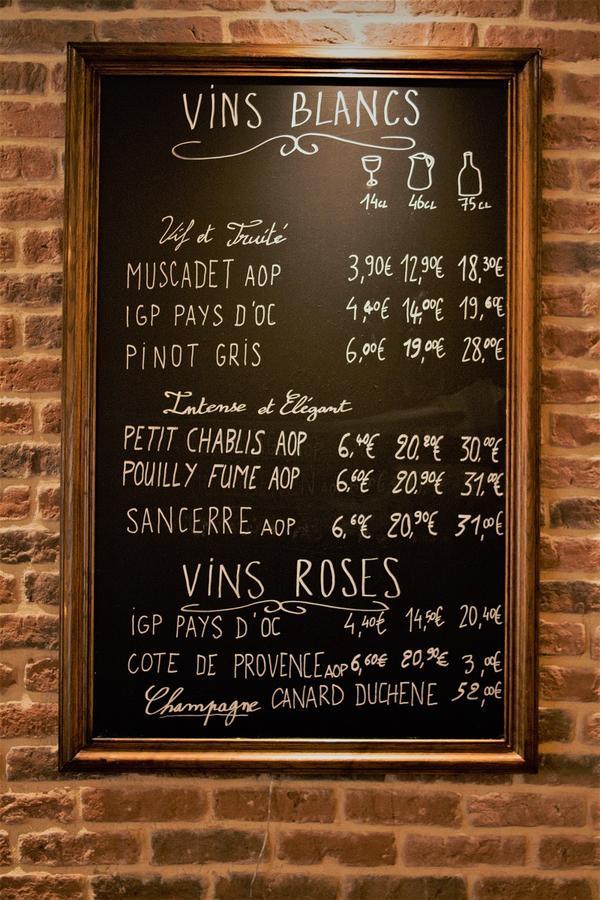 VINS BLANCS
14cL 46cL 75cL
Vif et Fruité
MUSCADET AOP 3,90€ 12,90€ 18,30€
IGP PAYS D'OC 4,40€ 14,00€ 19,60€
PINOT GRIS 6,00€ 19,00€ 28,00€
Intense et Elégant
PETIT CHABLIS AOP 6,40€ 20,20€ 30,00€
POUILLY FUME AOP 6,60€ 20,90€ 31,00€
SANCERRE AOP 6,60€ 20,90€ 31,00€
VINS ROSES
IGP PAYS D'OC 4,40€ 14,50€ 20,40€
COTE DE PROVENCE AOP 6,60€ 20,90€ 3 ,00€
Champagne CANARD DUCHENE 52,00€